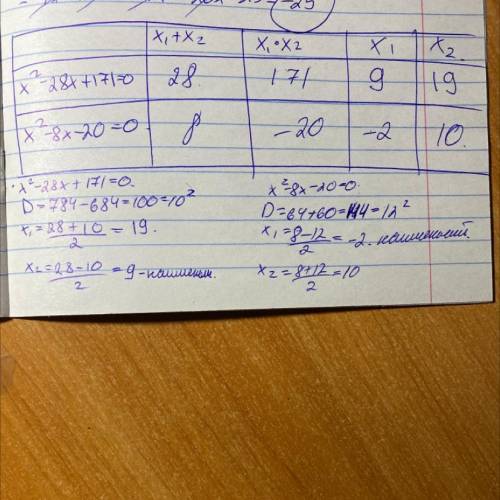 x₁+x₂ x₁•x₂ x₁ x₂
x²-28x+171=0 28 171 9 19
x²-8x-20=0 8 -20 -2 10
x²-28x+171=0.
D=784-684=100=10²
x₁=28+10/2=19.
x₂=28-10/2=9-наименьш.
x²-8x-20=0.
D=64+60=144=12²
x₁=8-12/2=-2. наименьший.
x₂=8+12/2=10